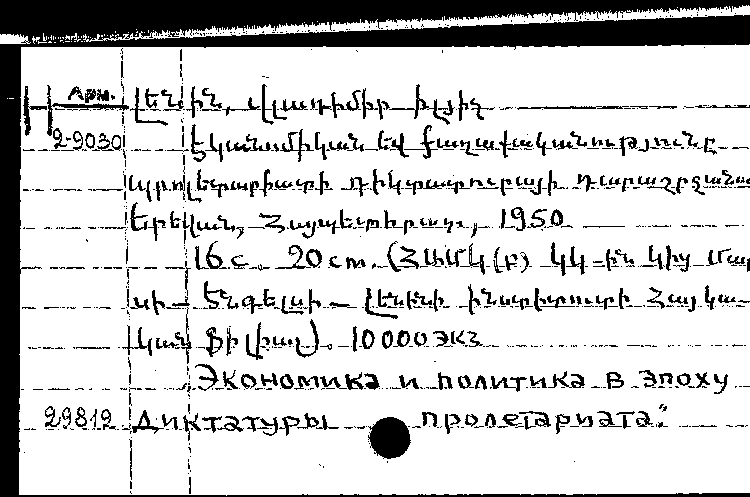 Арм. Լենին, Վլադիմիր Իլյիչ
2-9030 Էկանոմիկան եվ քաղաքականությունը
պրոլետարիատի դիկտատուրայի դարաշրջանում
Երեվան, Հայպետհրատ, 1950
16 с. 20 cm. (ՀամԿ(բ) ԿԿ-ին կից Մար
սի - Էնգելսի - Լենինի ինստիտուտի Հայկա-
կան Ֆիլիալ). 10000 экз
"Экономика и политика в эпоху
29812 диктатуры пролетариата."